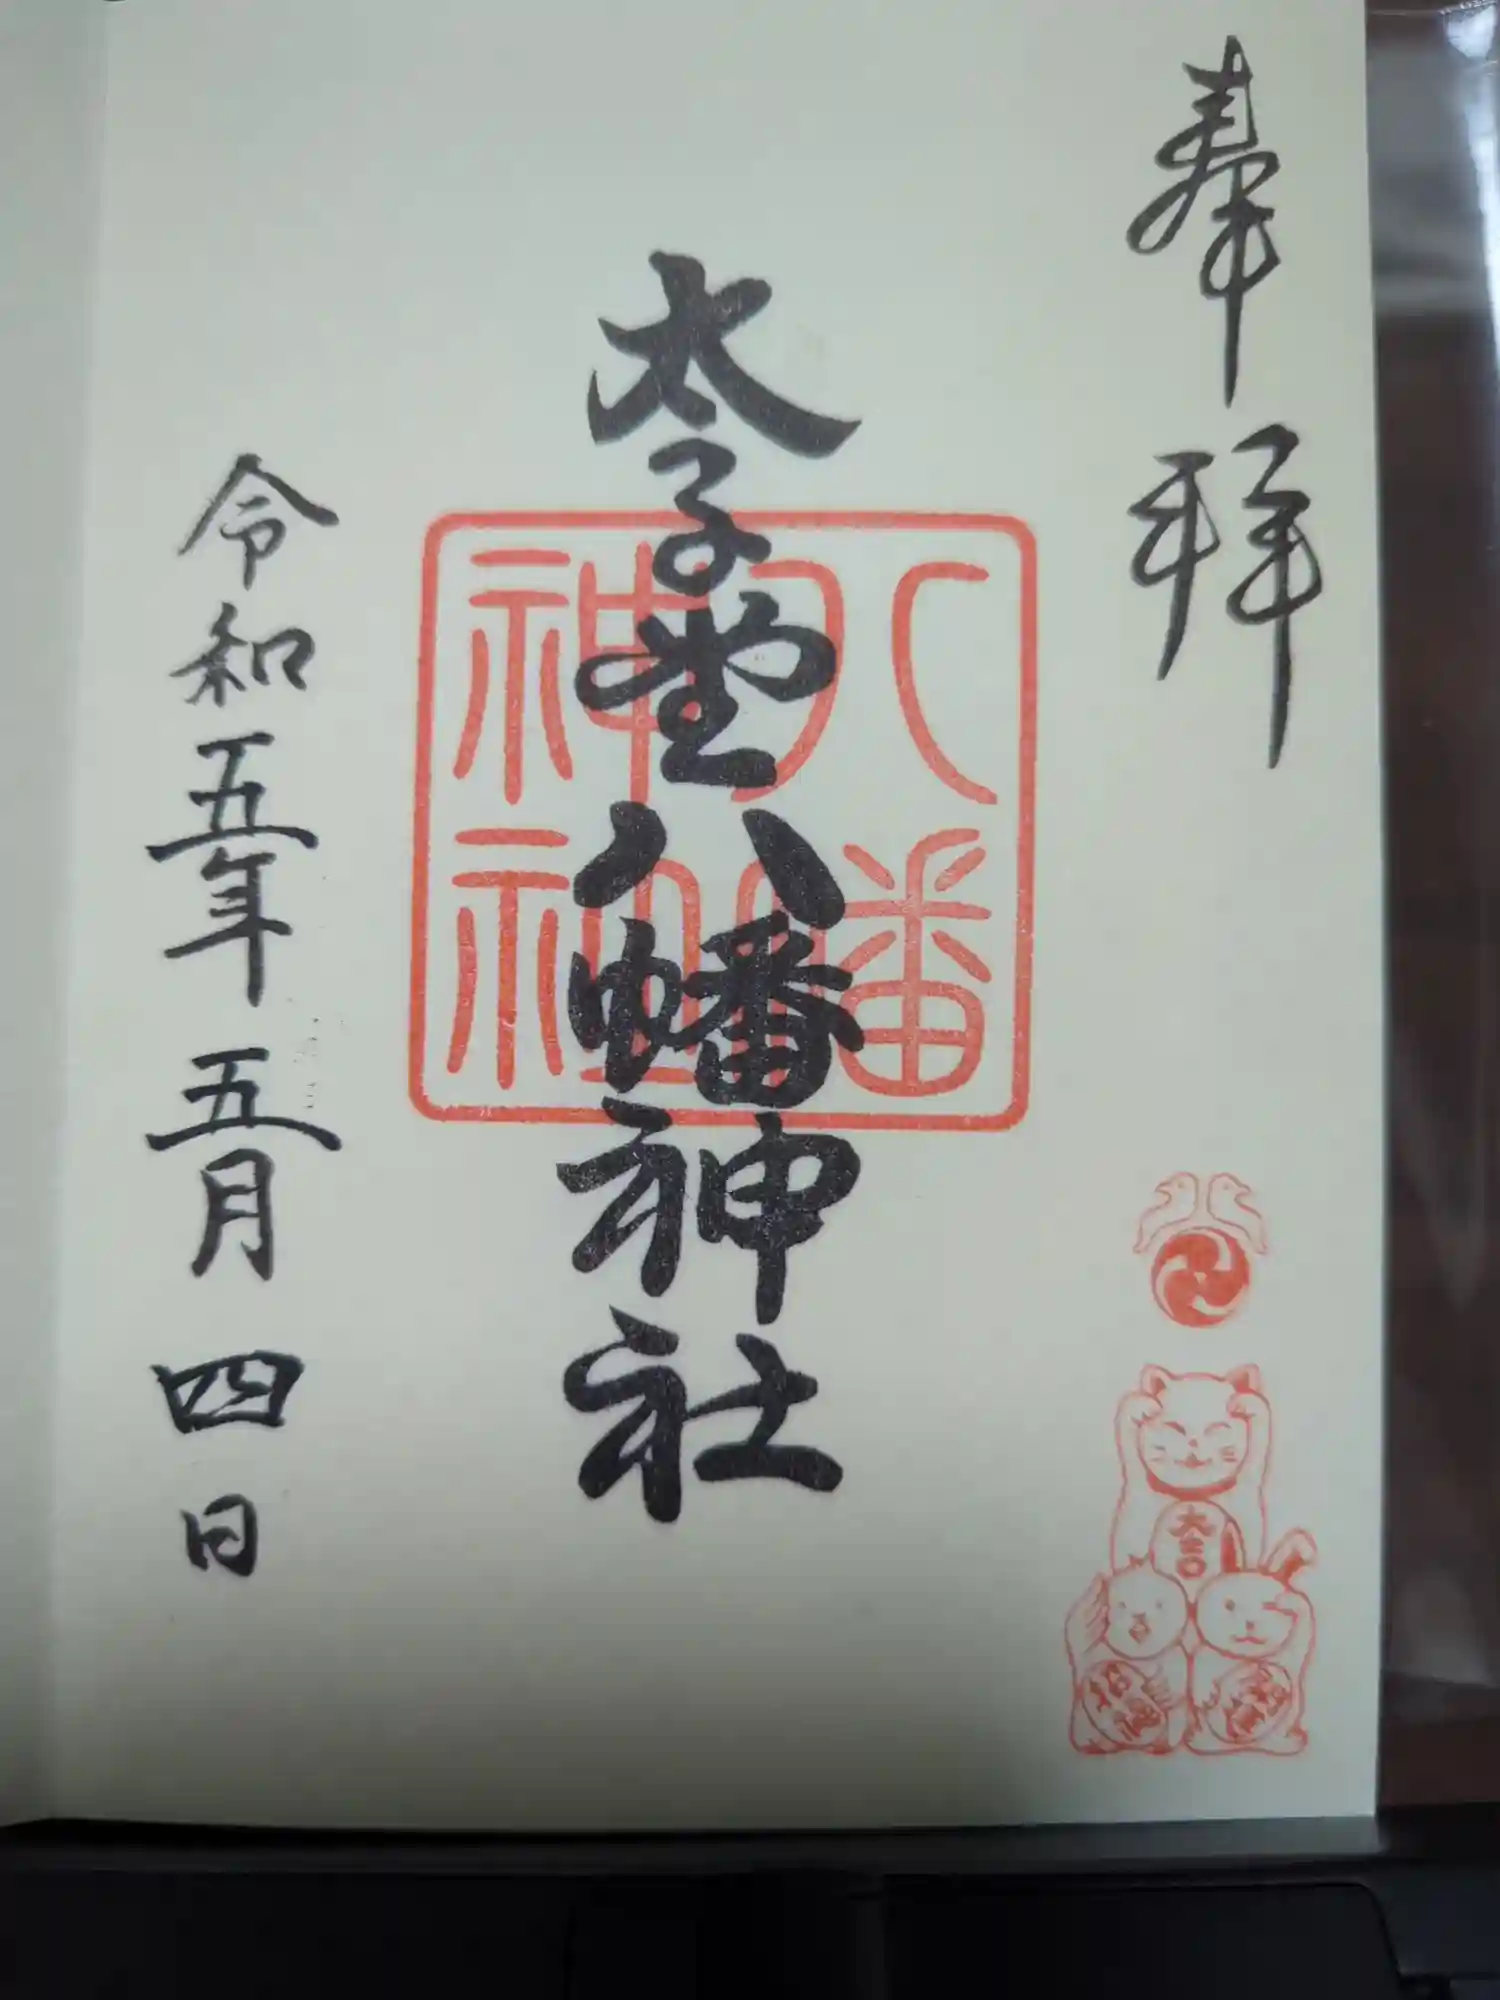 奉拝
太子堂八幡神社
八幡神社
令和五年五月四日
大吉
招福